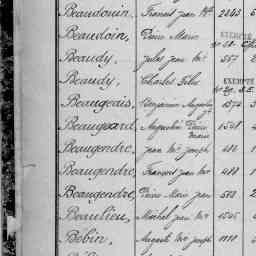 Beaudouin, Francois Jean Mie 2243
Beaudoin, Pierre Marie
EXEMPTÉ
Beaudy, Jules Jean Mie 557 2
Beaudy, Charles Félix
EXEMPTÉ
Beaugeais, Benjamin Auguste 1574
Beaugeard, Augustin Pierre Marie 1548 4
Beaugendre, Jean Mie Joseph 481 1
Beaugendre, François Jean Mie 488 1
Beaugendre, Pierre Marie Jean 503 2
Beaulieu, Michel Jean Mie 1545 4
Bébin, Auguste Mie Joseph 1111